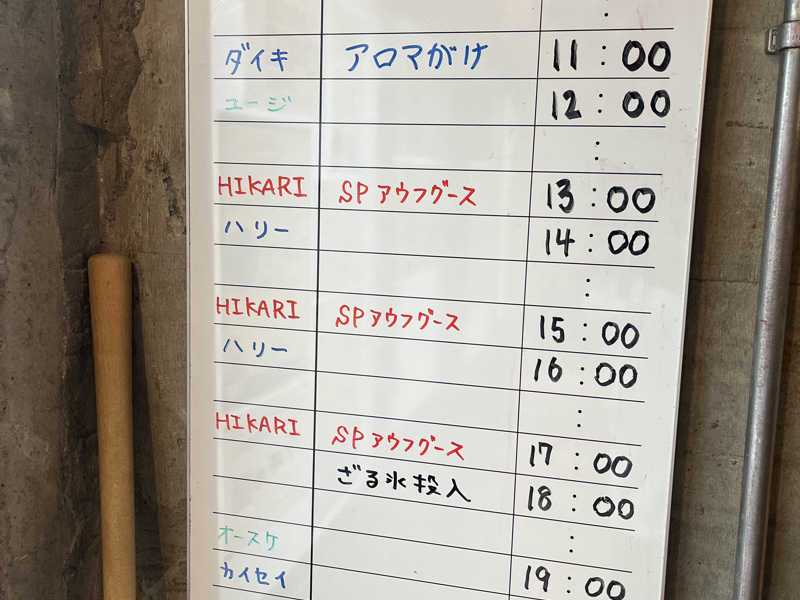 :
ダイキ アロマがけ 11:00
ユージ 12:00
:
HIKARI SPアウフグース 13:00
ハリー 14:00
:
HIKARI SPアウフグース 15:00
ハリー 16:00
:
HIKARI SPアウフグース 17:00
ざる氷投入 18:00
オースケ :
カイセイ 19:00